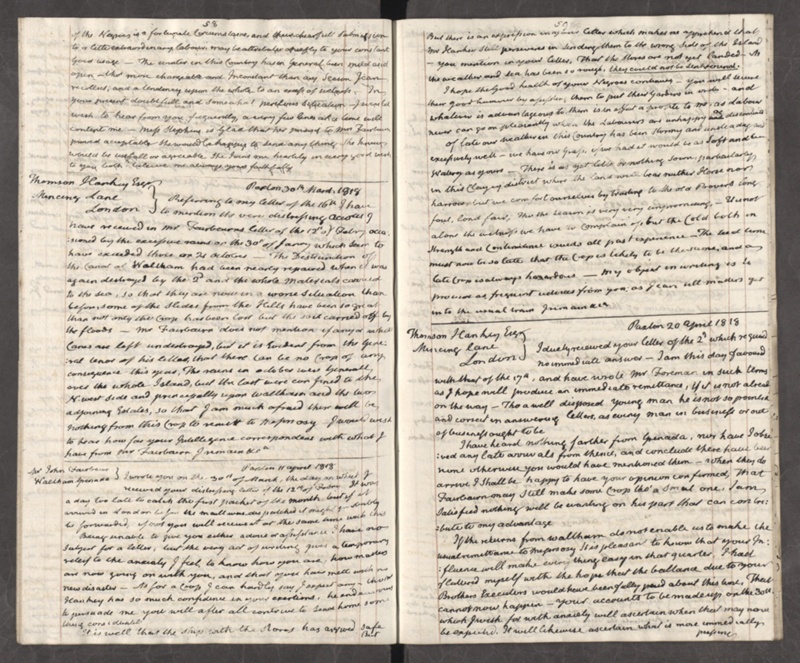 58
of the Negroes is a fortunate Circumstance, and their chearfull Submission
to a little extraordinary labour may be attributed chiefly to your constant
good usage - The winter in this Country has in General been mild and
open altho' more changeable and Inconstant than any Season I can
recollect, and a tendency upon the whole to an excess of wetness. In
your present doubtfull and somewhat perilous Situation I would
wish to hear from you frequently, a very few lines at a time will
content me - Miss Stephens is Glad that her present to Mrs Fairbairn
proved acceptable She would be happy to send any thing She knew
would be usefull or agreeable She joins me heartily in every good wish
to you both & believe me always yours faithfully
Thomson Hankey Esqr
Mincing Lane
London
Paxton 30th March 1818
Referring to my letter of the 16th I have
to mention the very distressing Accots I
have received in Mr Fairbairns letter of the 12th of Febry occa
sioned by the excessive rains on the 30th of Janry which seem to
have exceeded those in October. The Destruction of
the Canal at Waltham had been nearly repaired when it was
again destroyed by the 2d and the whole Materials carried
to the Sea, so that they are now in a worse Situation than
before. Some of the Slides from the Hills have been so great
that not only the Crop has been lost but the soil carried off by
the floods - Mr Fairbairn does not mention if any or what
Canes are left undestroyed, but it is Evident from the Gene
ral tenor of his letter, that there can be no Crop of any
consequence this year, The rains in october were Generall
over the whole Island, but the last were confined to the
N. west side and principally upon Waltham and the two
adjoining Estates, so that I am much afraid there will be
nothing from this Crop to remitt to Mrs Prosoy I would wish
to hear how far your Intelligence corresponds with what I
have from Mr Fairbairn I remain &ca
Mr John Fairbairn
Waltham Grenada
Paxton August 1818
I wrote you on the 30th of March, the day on which I
received your distressing letter of the 12th of Febry. It was
a day too late to catch the first packet of the month but if it
arrived in London before the mail was dispatched it might
be forwarded, if not you will receive it at the same time with this
Being unable to give you either advice or assistance I have no
subject for a letter, but the very act of writing gives a temporary
relief to the anxiety I feel to know how you are, how matters
are now going on with you, and that you have mett with no
new disaster - As for a Crop I can hardly say I expect any - Thos
Hankey has so much confidence in your exertions, he endeavoured
to persuade me you will after all contrive to send home some
thing considerable
It is well that the Ship with the Stores has arrived safe
But
59
But there is an expression in your letter which makes me apprehend that
Mr Hankey Still perseveres in Sending them to the wrong Side of the Island
- you mention in your letter, That the Stores are not yet Landed - As
the weather and Sea has been so rough they could not be transported
I hope the Good health of your Negroes continues - You will secure
their good humour by assisting them to put their Gardens in order - and
whatever is advantageous to them is in effect a profit to me, as Labour
never can go on pleasantly when the Labourers are unhappy and discontented
Of late our weather in this Country has been Stormy and
excessively wett - we have no Grass if we had it would be as Soft and
Watery as yours - There is as yet little or nothing sown, particularly
in this Clayey district where the land will bear neither Horse nor
harrow, but we comfort ourselves by trusting to the old Proverb long
foul, long fair, tho' the Season is very very unpromising - It is not
alone the wetness we have to Complain of, but the Cold both in
Strength and Continuance exceeds all past experience - The Seed time
must now be so late that the Crop is likely to be the same, and any
late Crop is always hazardous - My object in writing is to
procure as frequent notices from you, as I can till matters get
into the usual train I remain &ca
Thomson Hankey Esqr
Mincing Lane
London
Paxton 20 April 1818
I duly received your letter of the 2d which required
no immediate answer - I am this day favoured
with that of the 17th, and have wrote Mr Foreman in such terms
as I hope will produce an immediate remittance, if it is not already
on the way - Tho a well disposed young man he is not so punctual
and correct in answering letters, as every man in business or out
of business ought to be
I have heard nothing farther from Grenada, nor have I obser
ved any late arrivals from thence, and conclude there have been
none otherwise you would have mentioned them - when they do
arrive I shall be happy to have your opinion confirmed, That
Fairbairn may still make some Crop tho' a Small one. I am
Satisfied nothing will be wanting on his part that can contri
bute to my advantage
If the returns from Waltham do not enable us to make the
usual remittance to Mrs Prosoy It is pleasant to know that your In
fluence will make every thing easy in that quarter. I had
flattered myself with the hope that the ballance due to your
Brothers Executors would have been fully paid about this time, That
cannot now happen - your accounts to be made up on the 30th
which I wish for with anxiety will ascertain when that may now
be expected. It will likewise ascertain what is more immediately
pressing